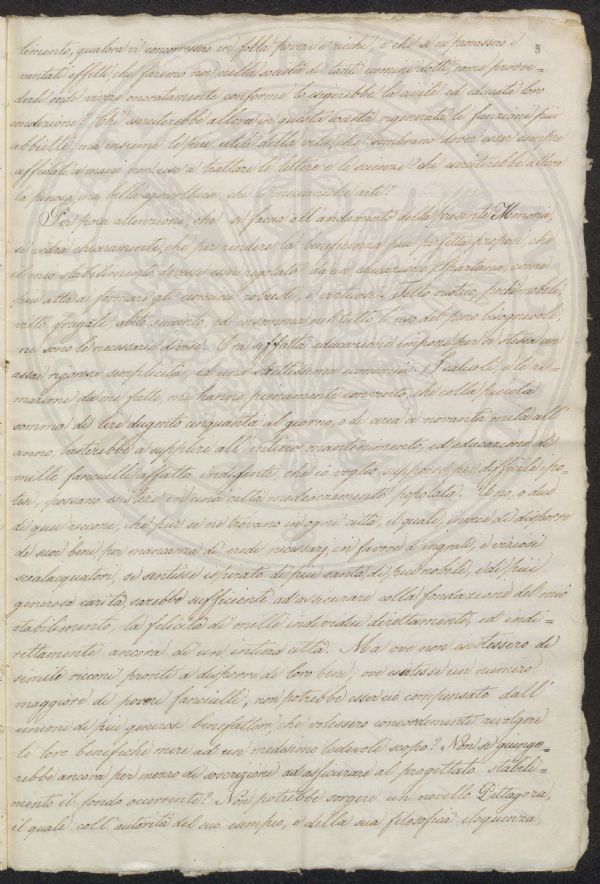 5
limento, qualora vi concorressero in folla poveri e ricchi, e che se ne provassero i
vantati effetti, che faremo noi nella società di tanti uomini dotti, come provve-
derli onde vivere onoratamente conforme lo esigerebbe la civile ed educata loro
condizione? Chi eserciterebbe allora in questa società rigenerata le funzioni più
abbiette, ma insieme le più utili della vita, che sembrano dover esser sempre
affidate a mani non use a trattare le lettere e le scienze? chi eserciterebbe allora
la penosa, ma bella agricoltura, chi le meccaniche arti?
Per poca attenzione, che si faccia all'andamento della presente Memoria,
si vedrà chiaramente, che per rendere la beneficenza più perfetta proposi, che
il mio stabilimento dovesse esser regolato da un'educazione Spartana, come
più atta a formare gli uomini robusti, e virtuosi. Tetto rustico, pochi mobili,
vitto frugale, abito succinto, ed insomma nel tutto l'uso del puro bisognevole,
ne sono le necessarie divise. Ora siffatta educazione impone per se stessa un
assai rigorosa semplicità, ed una strettissima economia. I calcoli, e le es-
mazioni da me fatte, mi hanno pienamente convinto, che colla piccola
somma di lire dugento cinquanta al giorno, o di circa a novanta mila all'
anno, basterebbe a supplire all'intiero mantenimento, ed educazione di
mille fanciulli affatto indigenti, che io voglio supporre per difficile ipo-
tesi, possano esistere in una città mediocremente popolata. Uno, o due
di quei ricconi, che pur se ne trovano in ogni città, il quale, invece di disporre
de' suoi beni per mancanza di eredi necessarj, in favore d'ingrati, e viziosi
scialacquatori, si sentisse ispirato di più santa, di più nobile, e di più
generosa carità, sarebbe sufficiente ad assicurare colla fondazione del mio
stabilimento, la felicità di mille individui direttamente, ed indi-
rettamente ancora di un'intera città. Ma ove non esistessero di
simili ricconi pronti a disporre di loro beni, ove esistesse un numero
maggiore di poveri fanciulli, non potrebbe esser ciò compensato dall'
unione di più generosi benefattori, che volessero concordemente rivolgere
le loro benefiche mire ad un medesimo lodevole scopo? Non si giunge-
rebbe ancora per mezzo di soscrizioni ad assicurare al progettato stabili-
mento il fondo occorrente? Non potrebbe sorgere un novello Pittagora,
il quale coll'autorità del suo esempio, e della sua filosofica eloquenza